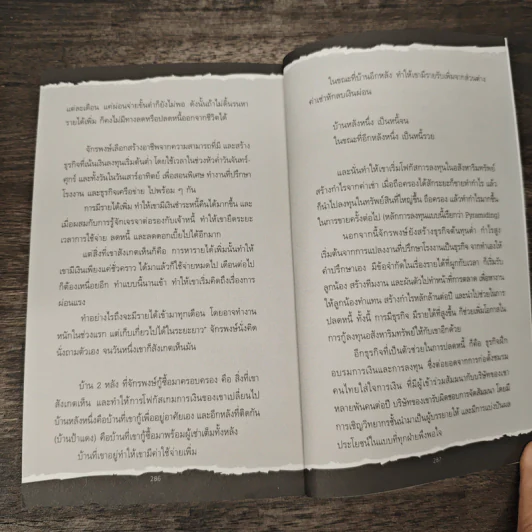 แต่ละเดือน แต่ผ่อนจ่ายขั้นต่ำก็ยังไม่พอ ดังนั้นถ้าไม่ดิ้นรนหา
รายได้เพิ่ม ก็คงไม่มีทางลดหรือปลดหนี้ออกจากชีวิตได้
จักรพงษ์เลือกสร้างอาชีพจากความสามารถที่มี และสร้าง
ธุรกิจที่เน้นเงินลงทุนเริ่มต้นต่ำ โดยใช้เวลาในช่วงหัวค่ำวันจันทร์-
ศุกร์ และทั้งวันในวันเสาร์อาทิตย์ เพื่อสอนพิเศษ ทำงานที่ปรึกษา
โรงงาน และธุรกิจเครือข่าย ไปพร้อม ๆ กัน
การมีรายได้เพิ่ม ทำให้เขามีเงินชำระหนี้คืนได้มากขึ้น และ
เมื่อผสมกับการรู้จักเจรจาต่อรองกับเจ้าหนี้ ทำให้เขายืดระยะ
เวลาการใช้จ่าย ลดหนี้ และลดดอกเบี้ยไปได้อีกมาก
แต่สิ่งที่เขาสังเกตเห็นก็คือ การหารายได้เพิ่มนั้นทำให้
เขามีเงินเพียงแค่ชั่วคราว ได้มาแล้วก็ใช้จ่ายหมดไป เดือนต่อไป
ก็ต้องเหนื่อยอีก ทำแบบนี้นานเข้า ทำให้เขาเริ่มคิดถึงเรื่องการ
ผ่อนแรง
"ทำอย่างไรถึงจะมีรายได้เข้ามาทุกเดือน โดยอาจทำงาน
หนักในช่วงแรก แต่เก็บเกี่ยวไปได้ในระยะยาว" จักรพงษ์นั่งคิด
นั่งถามตัวเอง จนวันหนึ่งเขาก็สังเกตเห็นมัน
บ้าน 2 หลัง ที่จักรพงษ์กู้ซื้อมาครอบครอง คือ สิ่งที่เขา
สังเกตเห็น และทำให้การโฟกัสเกมการเงินของเขาเปลี่ยนไป
บ้านหลังหนึ่งคือบ้านที่เขากู้เพื่ออยู่อาศัยเอง และอีกหลังที่ติดกัน
(บ้านป้าแดง) คือบ้านที่เขากู้ซื้อมาพร้อมผู้เช่าเดิมทั้งหลัง
บ้านที่เขาอยู่ทำให้เขามีค่าใช้จ่ายเพิ่ม
286
ในขณะที่บ้านอีกหลัง ทำให้เขามีรายรับเพิ่มจากส่วนต่าง
ค่าเช่าหักลบเงินผ่อน
บ้านหลังหนึ่ง เป็นหนี้จน
ในขณะที่อีกหลังหนึ่ง เป็นหนี้รวย
และนั่นทำให้เขาเริ่มโฟกัสการลงทุนในอสังหาริมทรัพย์
สร้างกำไรจากค่าเช่า เมื่อถือครองได้สักระยะก็ขายทำกำไร แล้ว
ก็นำไปลงทุนในทรัพย์สินที่ใหญ่ขึ้น ถือครอง แล้วทำกำไรมากขึ้น
ในการขายครั้งต่อไป (หลักการลงทุนแบบนี้เรียกว่า Pyramiding)
นอกจากนี้จักรพงษ์ยังสร้างธุรกิจต้นทุนต่ำ กำไรสูง
เริ่มต้นจากการแปลงงานที่ปรึกษาโรงงานเป็นธุรกิจ จากทำเองให้
คำปรึกษาเอง มีข้อจำกัดในเรื่องรายได้ที่ผูกกับเวลา ก็เริ่มรับ
ลูกน้อง สร้างทีมงาน และผันตัวไปทำหน้าที่การตลาด เพื่อหางาน
ให้ลูกน้องทำแทน สร้างกำไรหลักล้านต่อปี และนำไปช่วยในการ
ปลดหนี้ ทั้งนี้ การมีธุรกิจ มีรายได้ที่สูงขึ้น ก็ช่วยเพิ่มโอกาสใน
การกู้ลงทุนอสังหาริมทรัพย์ให้กับเขาอีกด้วย
อีกธุรกิจที่เป็นตัวช่วยในการปลดหนี้ ก็คือ ธุรกิจฝึก
อบรมการเงินและการลงทุน ซึ่งต่อยอดจากการก่อตั้งชมรม
คนไทยใส่ใจการเงิน ที่มีผู้เข้าร่วมสัมมนากับบริษัทของเขา
หลายพันคนต่อปี บริษัทของเขารับผิดชอบการจัดสัมมนา โดยมี
การเชิญวิทยากรชั้นนำมาเป็นผู้บรรยายให้ และมีการแบ่งปันผล
ประโยชน์ในแบบที่ทุกฝ่ายพึงพอใจ
287